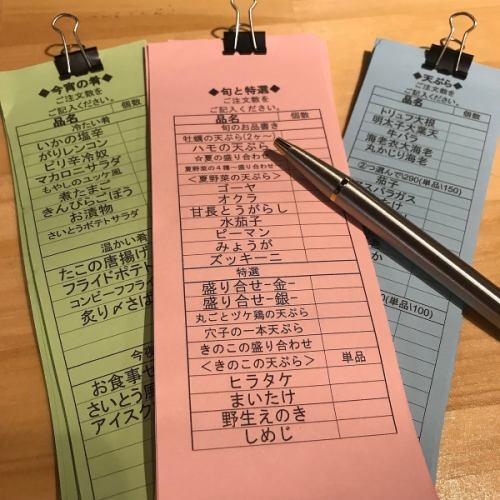 ◆今宵の肴◆
ご注文数を
ご記入ください。
品名 個数
冷たい肴
いかの塩辛
がりレンコン
とり辛冷奴
マカロニサラダ
もやしのユッケ風
煮たまご
きんぴらごぼう
お漬物
さいとうポテトサラダ
温かい肴
たこの唐揚げ
フライドポテト
コンビーフフライ
炙り〆さば
今夜
お食事セ
さいとう風
アイスク
◆旬と特選◆
ご注文数を
ご記入ください。
品名 個数
旬のお品書き
牡蠣の天ぷら(2ヶ~)
ハモの天ぷら
☆夏の盛り合わせ
夏野菜の4種~盛り合わせ
<夏野菜の天ぷら>
ゴーヤ
オクラ
甘長とうがらし
水茄子
ピーマン
みょうが
ズッキーニ
特選
盛り合せ-金-
盛り合せ-銀-
丸ごとツケ鶏の天ぷら
穴子の一本天ぷら
きのこの盛り合わせ
<きのこの天ぷら> 単品
ヒラタケ
まいたけ
野生えのき
しめじ
◆天ぷら◆
ご注文数を
ご記入ください。
品名 個数
トリュフ大根
明太大葉天
牛バラ
海老衣大海老
丸かじり海老
②つ選んで\290(単品\150)
茄子
アスパラガス
(単品\100)